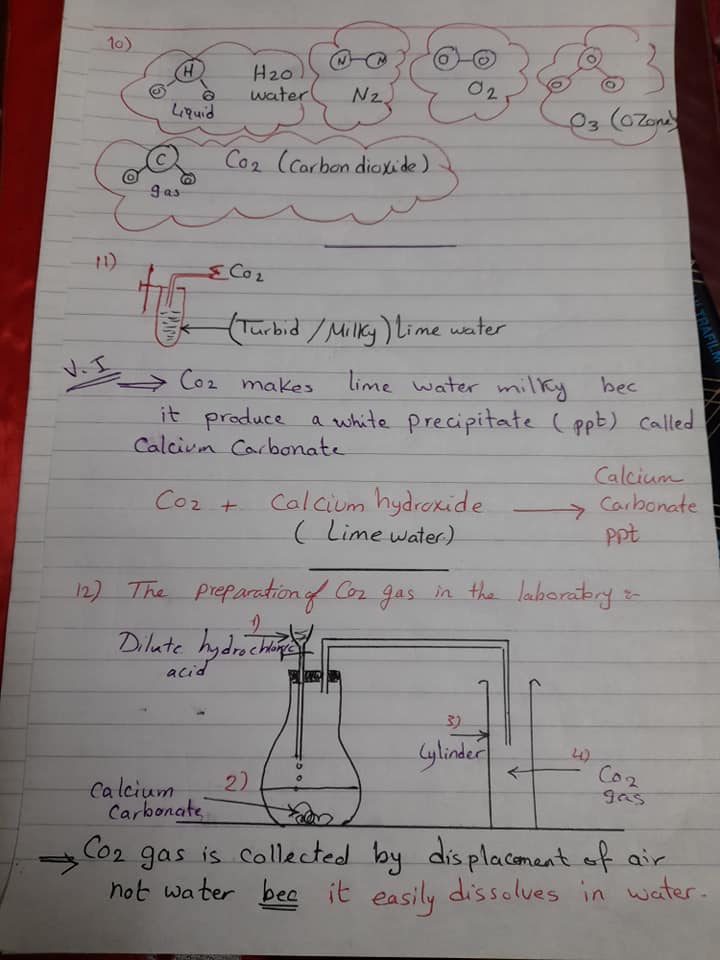 10)
H
O
O
Liquid
H2O
water
N N
N2
O O
O2
O
O O
O3 (OZone)
C
O O
gas
Co2 (Carbon dioxide)
11)
Co2
(Turbid / Milky) Lime water
V.I
Co2 makes lime water milky bec
it produce a white precipitate (ppt) called
Calcium Carbonate
Calcium
Co2 + Calcium hydroxide → Carbonate
( Lime water) ppt
12) The preparation of Co2 gas in the laboratory :-
1)
Dilute hydrochloric
acid
3)
Cylinder
4)
Co2
gas
2)
Calcium
Carbonate
Co2 gas is collected by displacment of air
not water bec it easily dissolves in water.